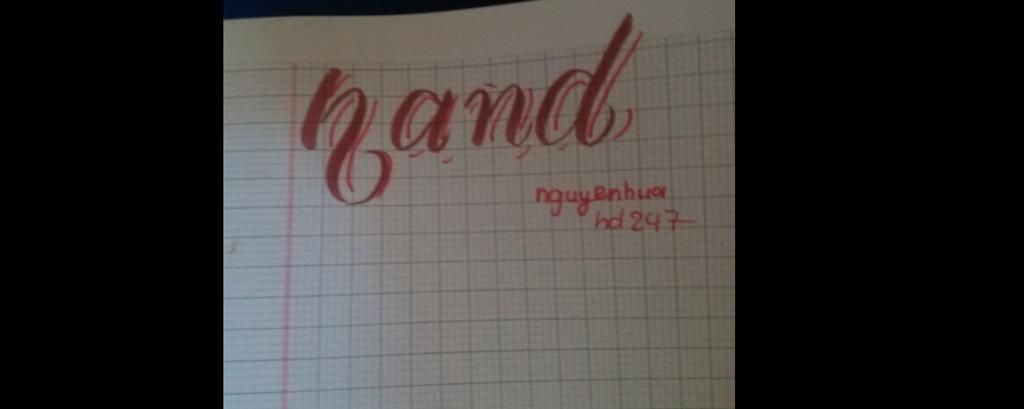 hand
nguyenhua
hd247